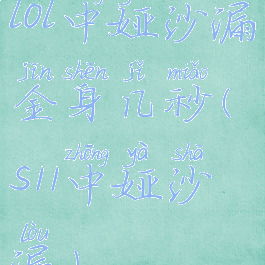 lol中娅沙漏
jīn shēn jǐ miǎo
金身几秒(
zhōng yà shā
s11中娅沙
lòu
漏)